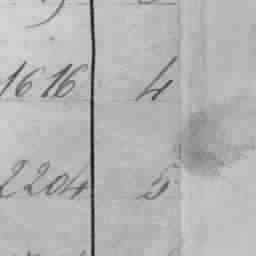 1616 4
2204 5